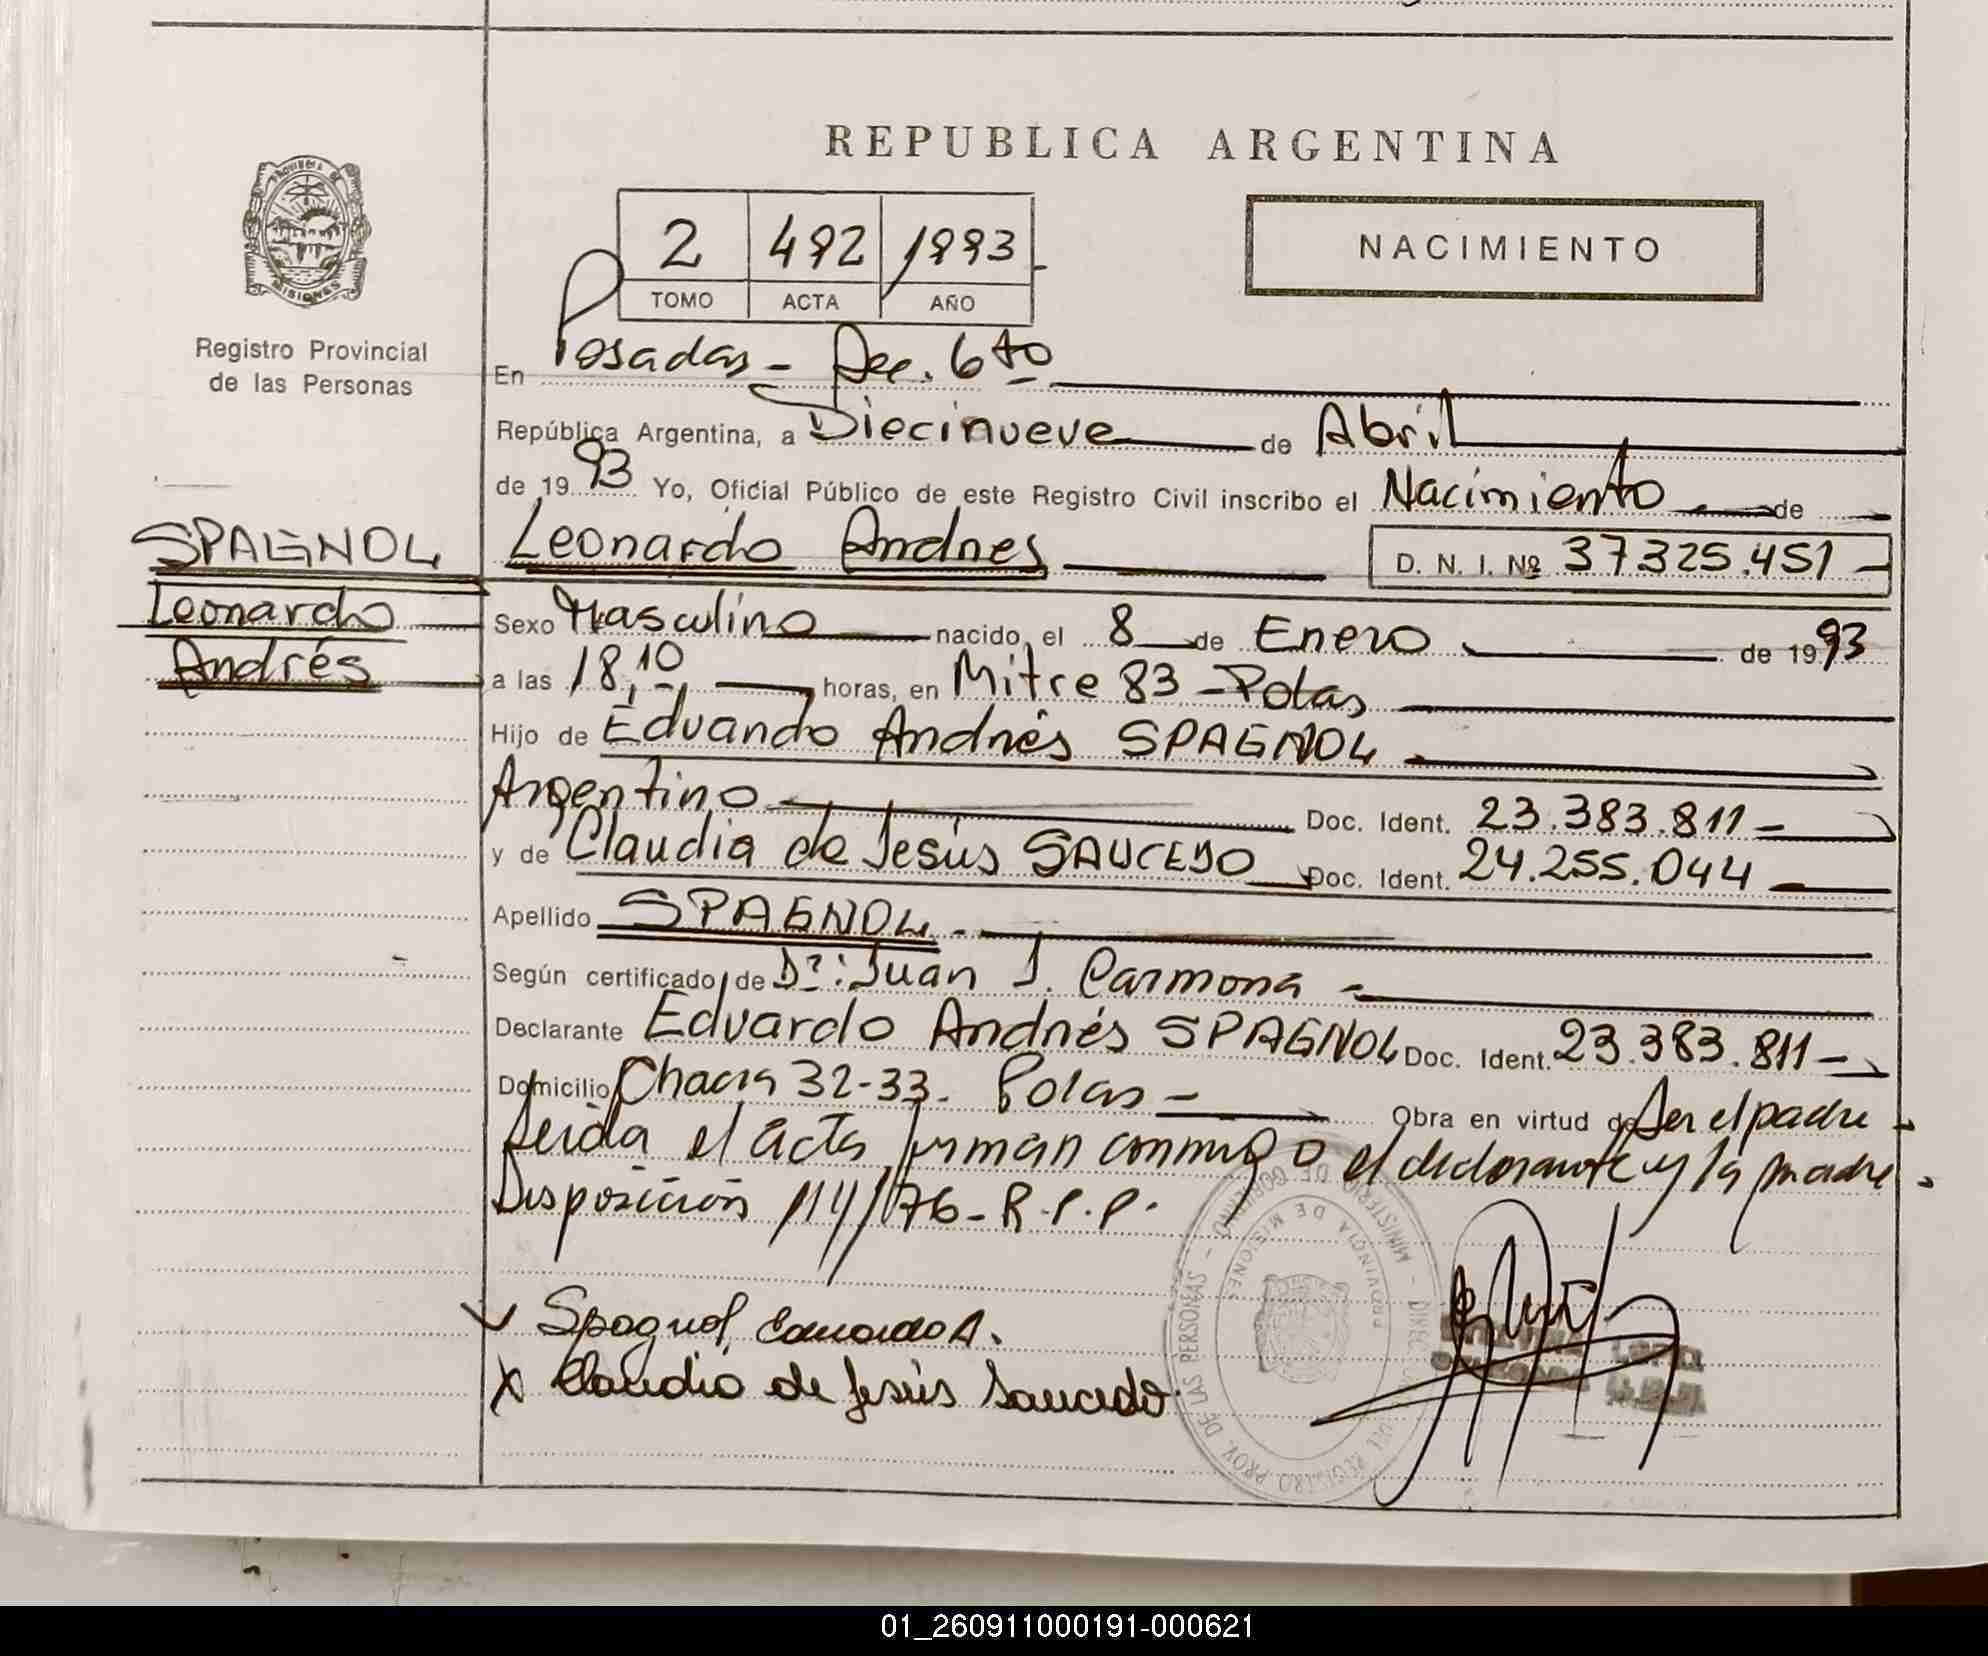 REPUBLICA ARGENTINA
NACIMIENTO
2 492 1993
TOMO ACTA AÑO
Registro Provincial
de las Personas
MISIONES
En Posadas - Sec. 6to
República Argentina, a Diecinueve de Abril
de 1993 Yo, Oficial Público de este Registro Civil inscribo el Nacimiento de
SPAGNOL
Leonardo
Andrés
Leonardo Andres D. N. I. Nº 37.325.451 -
Sexo Masculino nacido el 8 de Enero de 1993
a las 18,10 horas, en Mitre 83 - Pdas
Hijo de Eduardo Andrés SPAGNOL
Argentino Doc. Ident. 23.383.811 -
y de Claudia de Jesús SAUCEDO Doc. Ident. 24.255.044
Apellido SPAGNOL -
Según certificado de Dr: Juan J. Carmona -
Declarante Eduardo Andrés SPAGNOL Doc. Ident. 23.383.811 -
Domicilio Chacra 32-33. Pdas - Obra en virtud de Ser el padre -
Leida el acta firman conmigo el declarante y la madre.
Disposición 114/76 - R.P.P.
Spagnol Eduardo A.
X Claudia de Jesús Saucedo
MINISTERIO DE GOBIERNO - PROVINCIA DE MISIONES
REGISTRO PROV. DE LAS PERSONAS
01_260911000191-000621